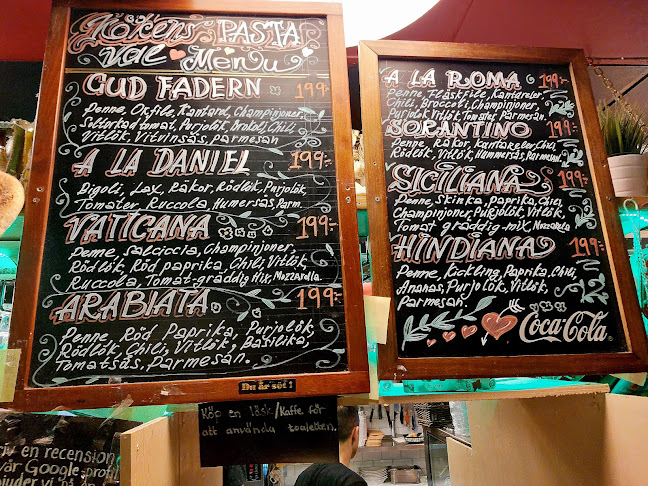 Kökens PASTA
val Menu
GUD FADERN 199:-
Penne, Oxfile, Kantarel, Champinjoner,
Soltorkad tomat, Purjolök, Brokoli, Chili,
Vitlök, Vitvinsås, parmesan
A LA DANIEL 199:-
Rigoli, Lax, Räkor, Rödlök, Purjolök,
Tomater, Ruccola, Humersås, Parm.
VATICANA 199:-
Penne, Salciccia, Champinjoner,
Rödlök, Röd paprika, Chili, Vitlök,
Ruccola, Tomat-gräddig Mix, Mozzarella.
ARABIATA 199:-
Penne, Röd Paprika, Purjolök,
Rödlök, Chili, Vitlök, Basilika,
Tomatsås, Parmesan.
Du är söt!
A LA ROMA 199:-
Penne, Fläskfile, Kantareler,
Chili, Broccoli, Champinjoner,
Purjolök, Vitlök, Tomater, Parmesan.
SORANTINO 199:-
Penne, Räkor, Kantareler, Chili,
Rödlök, Vitlök, Hummersås, Parmesan
SICILIANA 199:-
Penne, Skinka, Paprika, Chili,
Champinjoner, Purjolök, Vitlök,
Tomat gräddig-mix, Mozzarella
HINDIANA 199:-
Penne, Kyckling, Paprika, Chili,
Ananas, Purjolök, Vitlök,
Parmesan.
Coca-Cola
Köp en läsk/kaffe för
att använda toaletten.
iv en recension
vår Google profil